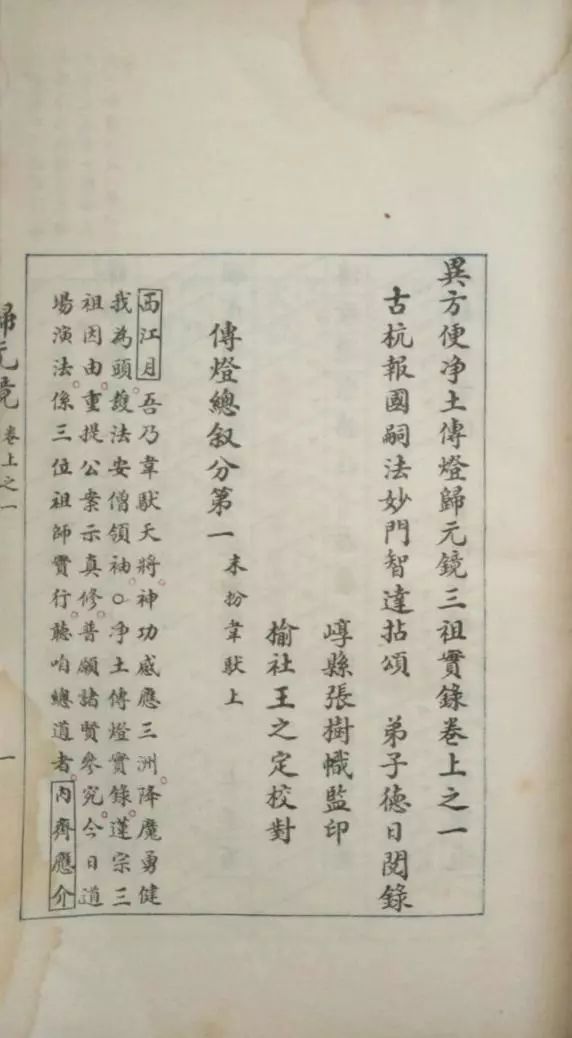 異方便净土傳燈歸元鏡三祖實錄卷上之一
古杭報國嗣法妙門智達拈頌　弟子德日閱錄
崞縣張樹幟監印
榆社王之定校對
傳燈總叙分第一　末扮韋馱上
西江月吾乃韋馱天將神功感應三洲降魔勇健
我為頭護法安僧領袖○净土傳燈實錄蓮宗三
祖因由重提公案示真修普願諸賢參究今日道
場演法係三位祖師實行聽咱總道者內齊應介
歸元鏡　卷上之一　一